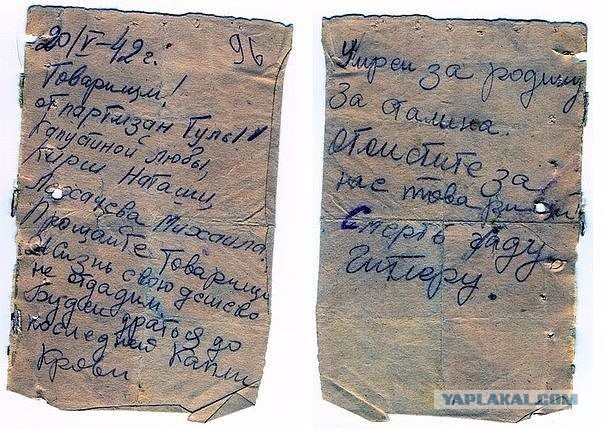 20/V-42 г.
96
Товарищи!
от партизан Тулы
Капустиной Любы,
Кирш Наташи,
Лихачева Михаила.
Прощайте Товарищи
Жизнь свою дешево
не отдадим.
Будем драться до
последней Капли
Крови
Умрем за родину
За Сталина.
Отомстите за
нас товарищи
Смерть гаду
Гитлеру.
YAPLAKAL.COM